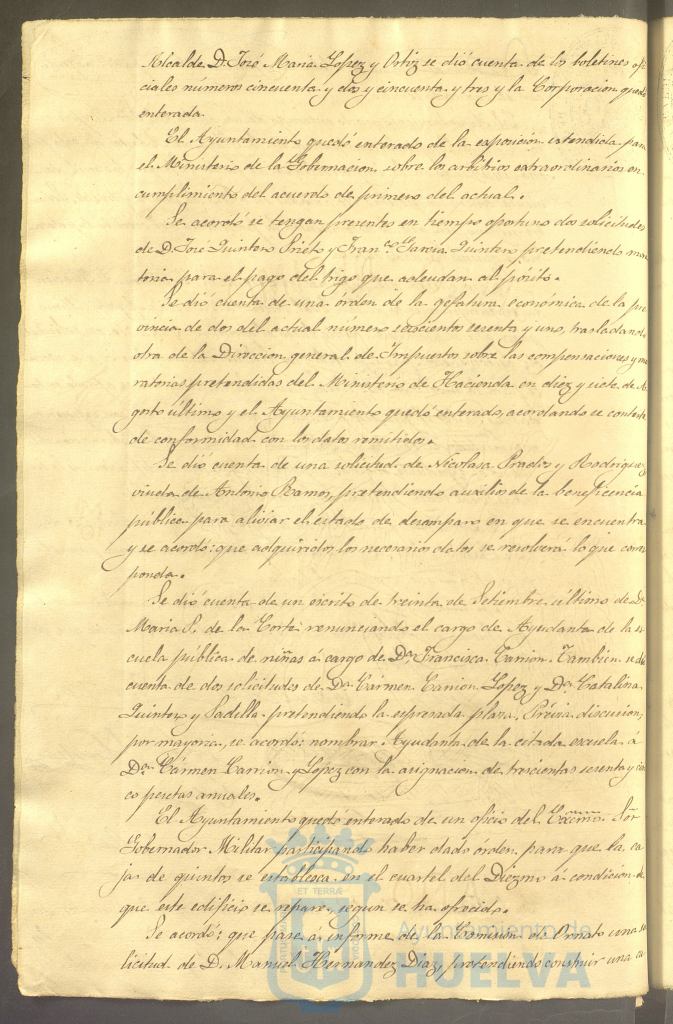 Alcalde D. José Maria Lopez y Ortiz se dió cuenta de los boletines ofi
ciales números cincuenta y dos y cincuenta y tres y la Corporacion quedó
enterada.
El Ayuntamiento quedó enterado de la esposicion estendida para
el Ministerio de la Gobernacion sobre los arbitrios extraordinarios en
cumplimiento del acuerdo de primero del actual.
Se acordó se tengan presentes en tiempo oportuno dos solicitudes
de D. José Quintero Prieto y Franco. Garcia Quintero pretendiendo mora
toria para el pago del trigo que adeudan al pósito.
Se dió cuenta de una órden de la gefatura económica de la pro
vincia de dos del actual número seiscientos sesenta y uno, trasladando
otra de la Direccion general de Impuestos sobre las compensaciones y mo
ratorias pretendidas del Ministerio de Hacienda en diez y siete de A
gosto último y el Ayuntamiento quedó enterado, acordando se conteste
de conformidad con los datos remitidos.
Se dió cuenta de una solicitud de Nicolasa Prados y Rodriguez
viuda de Antonio Ramos, pretendiendo auxilios de la beneficencia
pública para aliviar el estado de desamparo en que se encuentra
y se acordó: que adquiridos los necesarios datos se resolverá lo que corres
ponda.
Se dió cuenta de un escrito de treinta de Setiembre último de Da.
Maria P. de la Corte renunciando el cargo de Ayudanta de la es
cuela pública de niñas á cargo de Da. Francisca Carrion. Tambien se dió
cuenta de dos solicitudes de Da. Cármen Carrion Lopez y Da. Catalina
Quintero y Padilla pretendiendo la espresada plaza. Prévia discusion,
por mayoria, se acordó: nombrar Ayudanta de la citada escuela á
Da. Cármen Carrion y Lopez con la asignacion de trescientas sesenta y cin
co pesetas anuales.
El Ayuntamiento quedó enterado de un oficio del Excmo. Sor.
Gobernador Militar participando haber dado órden para que la ca
ja de quintos se establesca en el cuartel del Diezmo á condicion de
que este edificio se repare, segun se ha ofrecido.
Se acordó: que pase á informe de la Comision de Ornato una so
licitud de D. Manuel Hernandez Diaz, pretendiendo construir una ca
ET TERRÆ
Ayuntamiento de
HUELVA